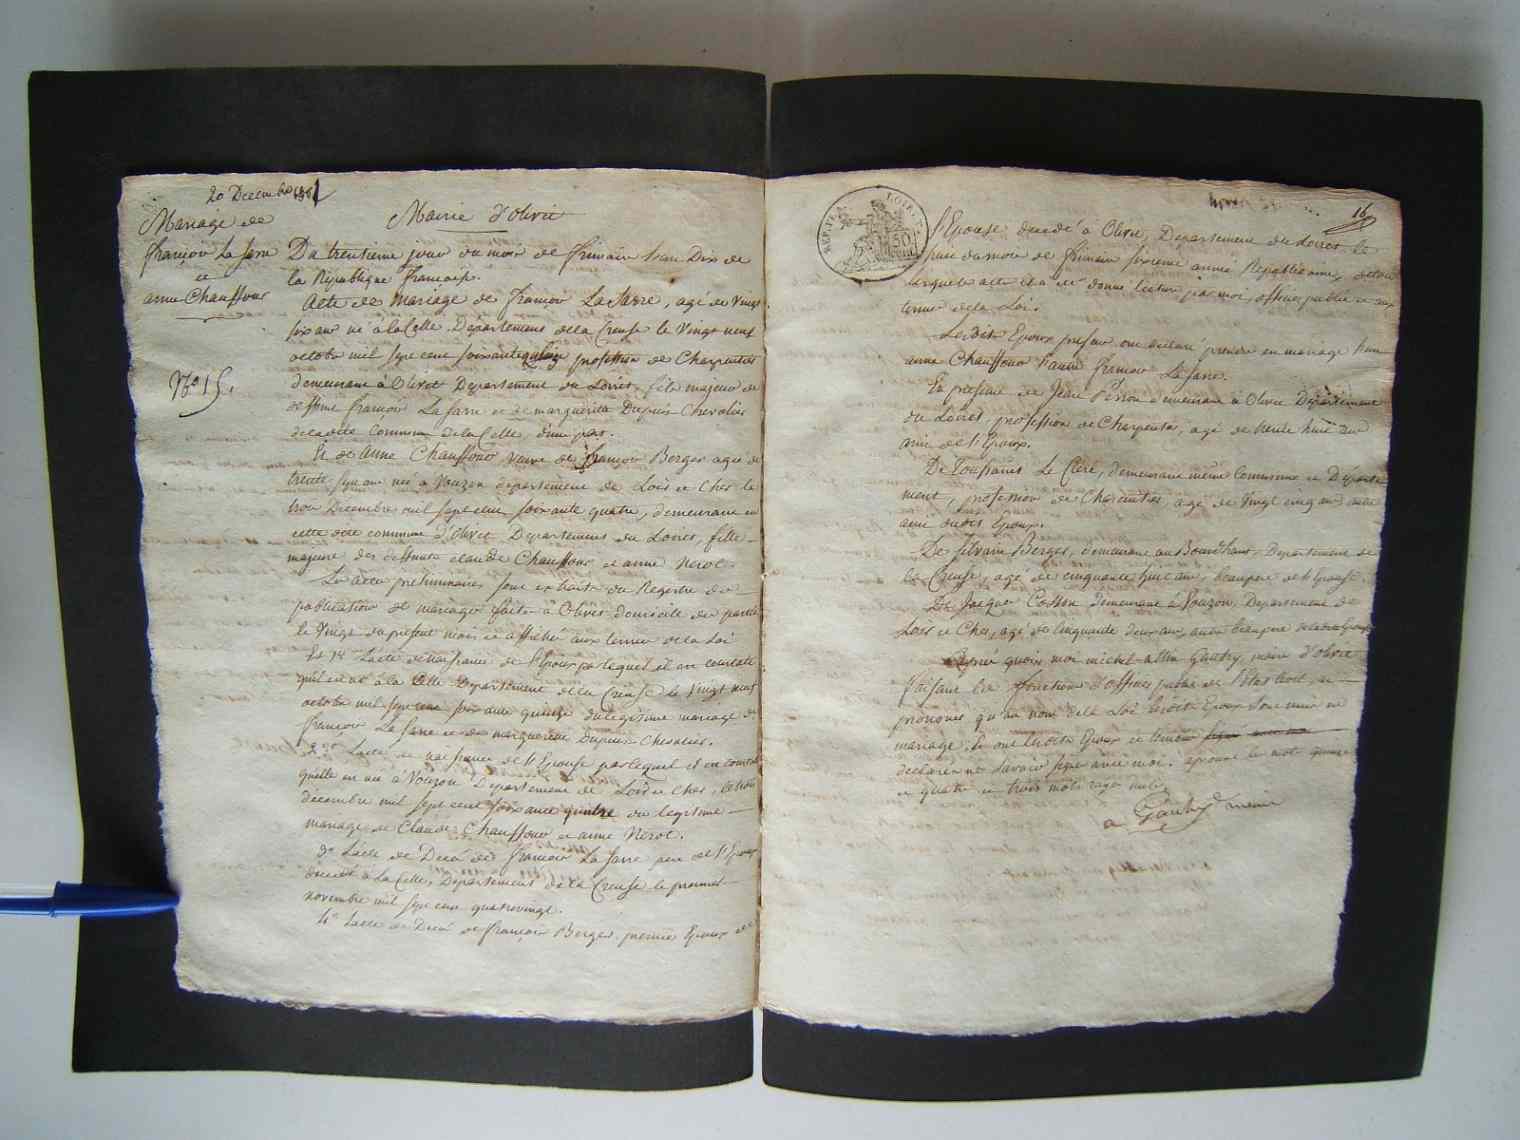 20 Decembre 1801
Mariage de
françois La farre
et
anne Chauffour
N° 15.
Mairie d'olivet
Du trentieme jour du mois de frimaire l'an Dix de
la République francaise.
Acte de Mariage de françois La farre, agé de Vingt
six ans né à la Celle Departement de la Creuse le Vingt neuf
octobre mil sept cent soixante quinze profession de Charpentier
demeurant à Olivet Département du Loiret, fils majeur de
deffunt françois La farre et de marguerite Dupuis Chevalier
de ladite Commune de la Celle d'une part.
Et de Anne Chauffour veuve de françois Berger agée de
trente sept ans née à Vouzon departement de Loir et Cher le
trois Decembre mil sept cent soixante quatre, demeurant en
cette dite commune d'olivet Departement du Loiret, fille
majeure des deffunts claude Chauffour et anne Nerot.
Les actes préliminaires sont extraits du Registre des
publications de mariages faites à Olivet domicile des parties
le Vingt du présent mois et affiché aux termes de la Loi
Et 1° L'acte de naissance de l'Epoux par lequel il en constate
qu'il est né à la Celle Département de la Creuse le Vingt neuf
octobre mil sept cent soixante quinze du légitime mariage de
françois La farre et de marguerite Dupuis Chevalier.
2° L'acte de naissance de l'Epouse par lequel il en constate
qu'elle est née à Vouzon Département de Loir et Cher, le trois
décembre mil sept cent soixante quatre du légitime
mariage de Claude Chauffour et anne Nerot.
3° L'acte de Décès de françois La farre pere de l'Epoux
décédé à La Celle, Département de la Creuse le premier
novembre mil sept cent quatrevingt.
4° L'acte de Décès de françois Berger, premier Epoux de
REP. FRA. LOIRET
50
16
l'Epouse décedé à Olivet, Departement du Loiret le
du mois de frimaire année Républicaine, de tous
lesquels actes il a été donné lecture par moi, officier public et aux
termes de la Loi.
Lesdits Epoux présens ont déclaré prendre en mariage l'une
anne Chauffour l'autre françois La farre.
En présence de Jean demeurant à Olivet Département
du Loiret, profession de Charpentier, agé de trente huit ans
ami de l'Epoux.
De Le Clerc, demeurant même Commune et Départe
ment, profession de Charpentier agé de Vingt cinq ans aussi
ami dudit Epoux.
De Silvain Berger, demeurant au Departement de
la Creuse, agé de cinquante huit ans, beaupere de l'Epouse.
De Jacques Cosson demeurant à Vouzon, Departement de
Loir et Cher, agé de Cinquante deux ans, aussi beaupere de ladite Epouse
Après quoi moi michel Gautry, maire d'olivet
faisant les fonctions d'officier public de l'état civil, ai
prononcé qu'au nom de la Loi lesdits Epoux sont unis en
mariage, et ont lesdits Epoux et témoins
déclaré ne savoir signer avec moi. aprouvé le mot quinze
et quatre et trois mots rayés nuls
Gautry maire